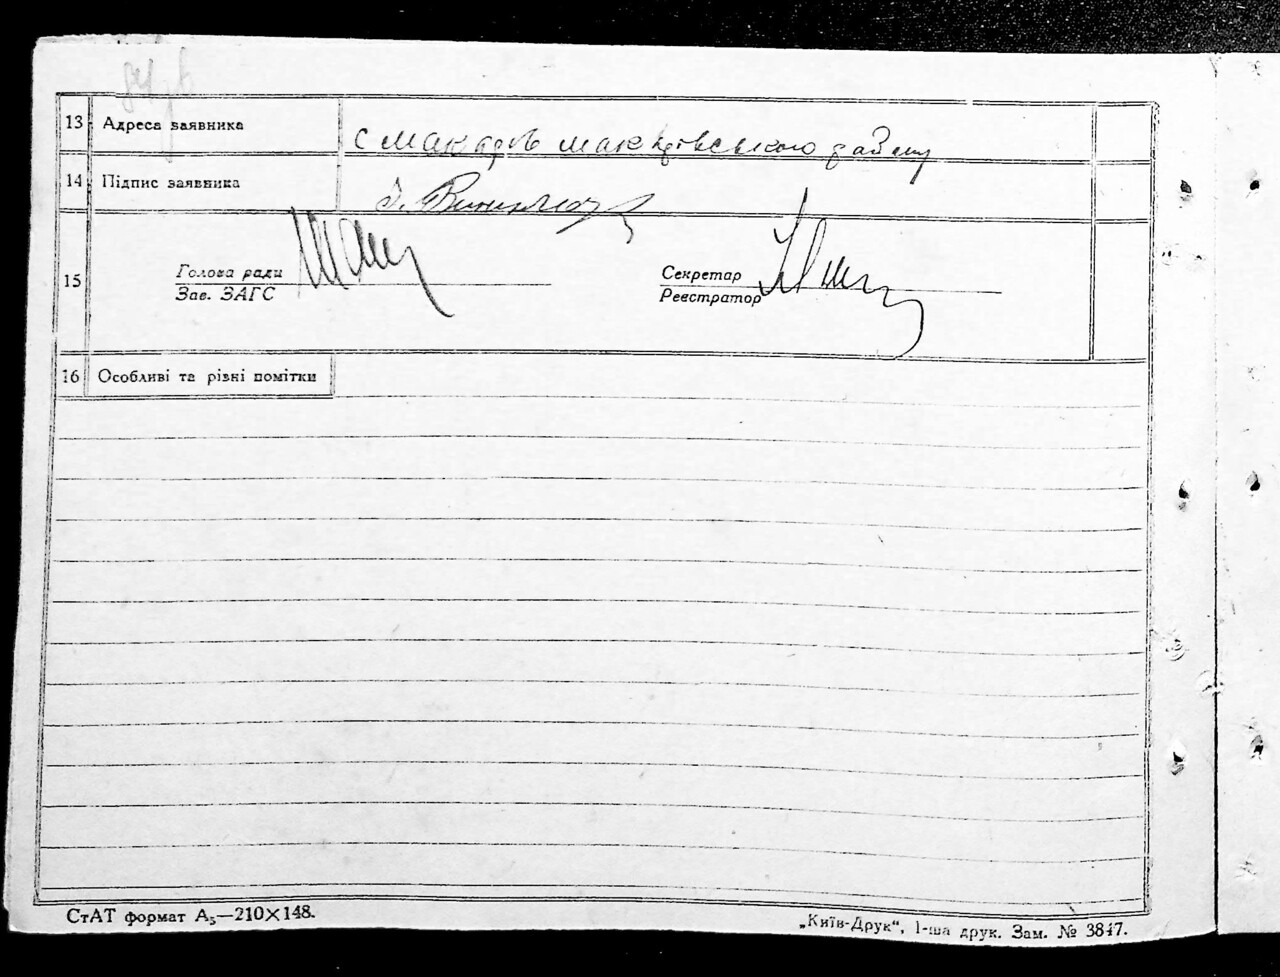 13 Адреса заявника с Макарів Макарівського району
14 Підпис заявника
15 Голова ради
Зав. ЗАГС
Секретар
Реєстратор
16 Особливі та різні помітки
СтАТ формат А₅—210×148.
„Київ-Друк“, 1-ша друк. Зам. № 3847.